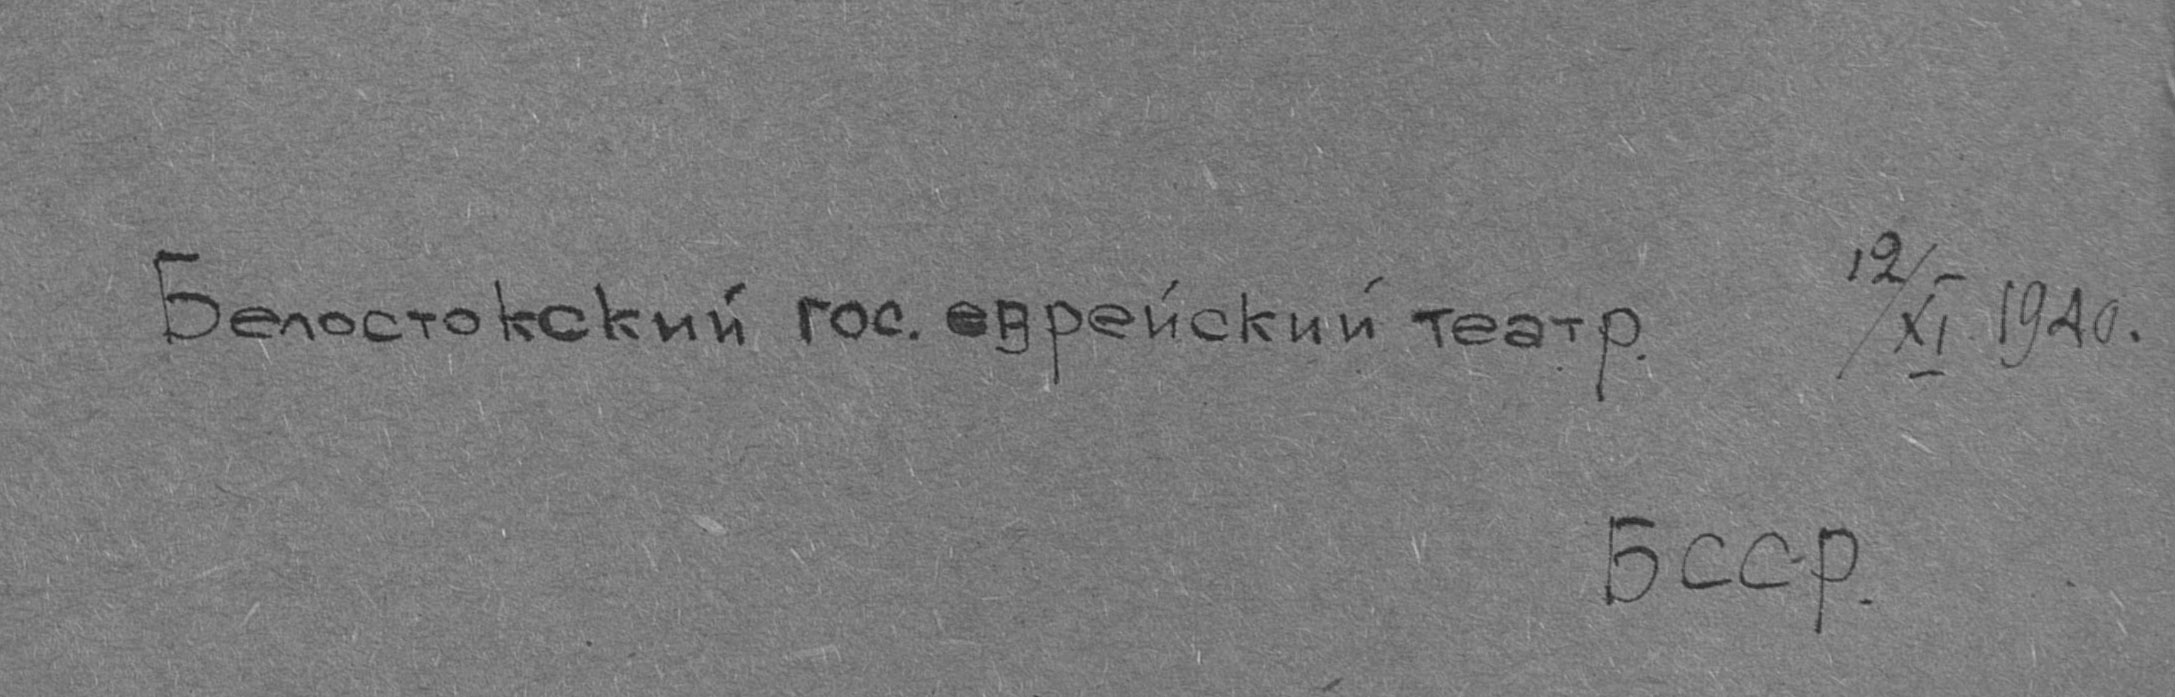 Белостокский гос. еврейский театр. 12/XI 1940.
БССР.